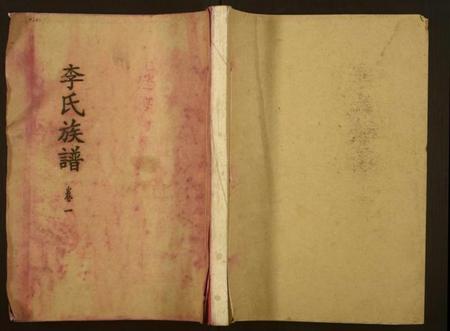 李氏族譜
卷一